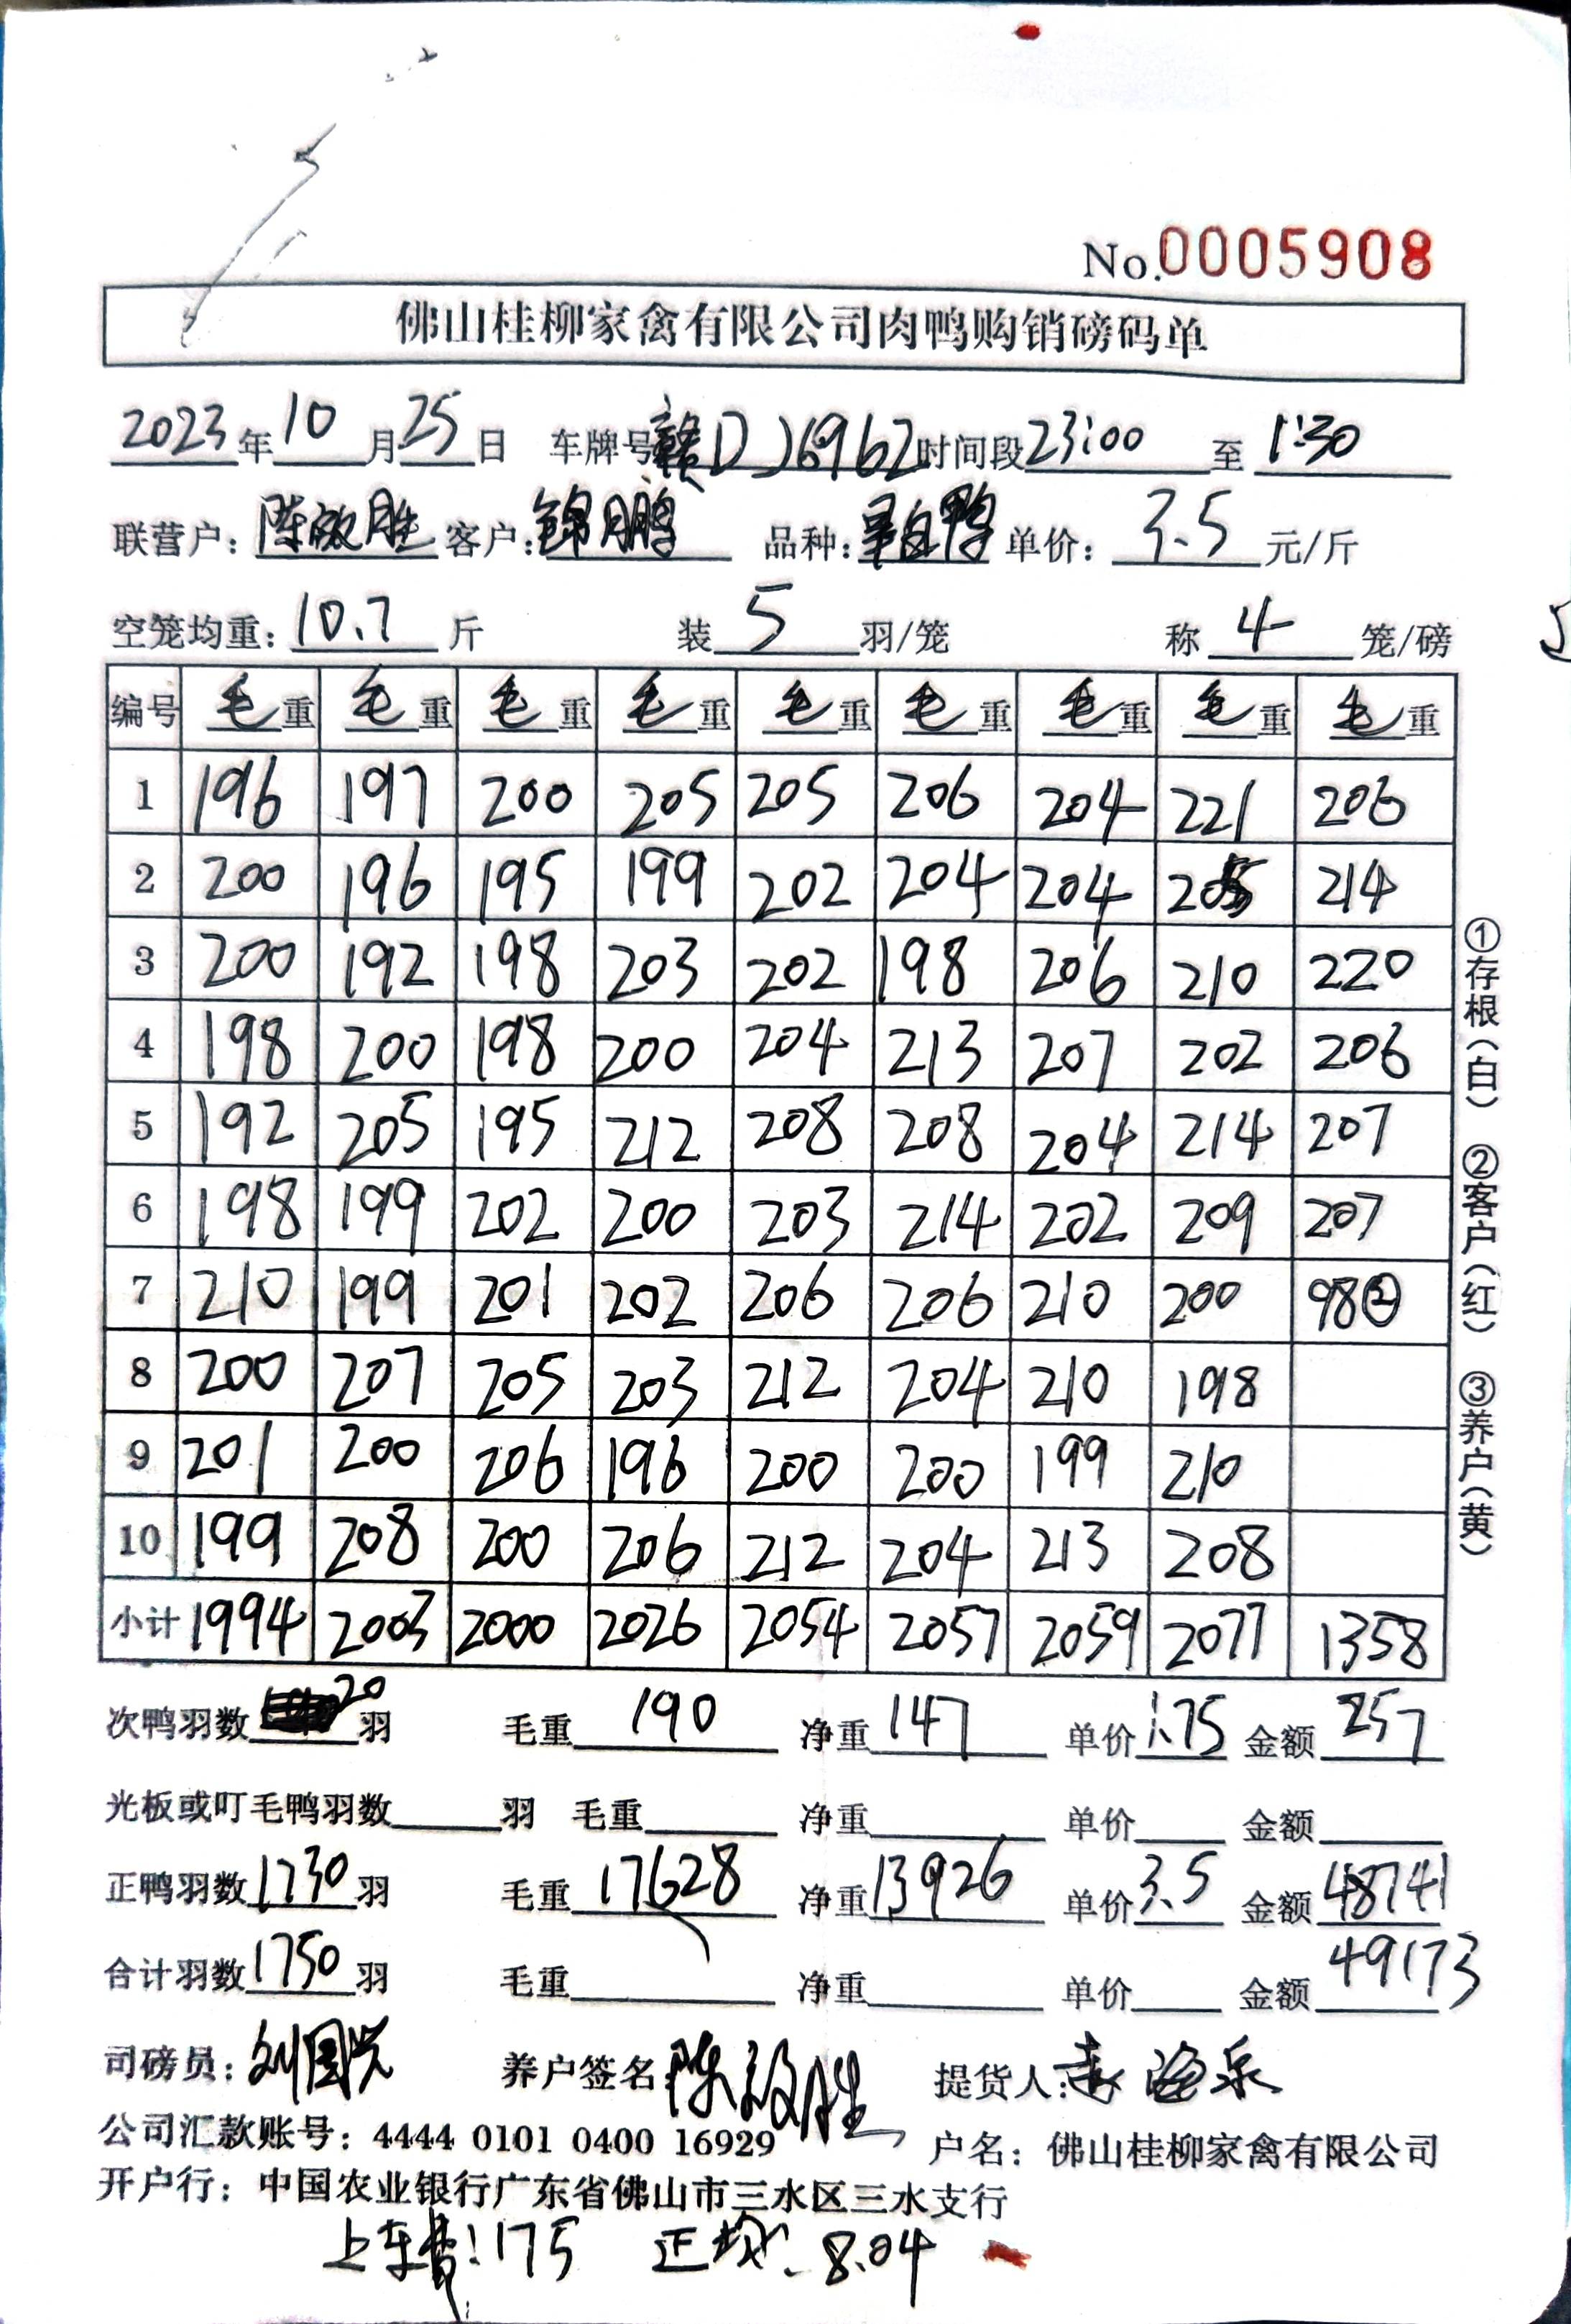 No.0005908
佛山桂柳家禽有限公司肉鸭购销磅码单
2023年10月25日 车牌号赣DJ6962时间段23:00至1:30
联营户：陈敬胜 客户：锦鹏 品种：白鸭 单价：3.5元/斤
空笼均重：10.7斤 装5羽/笼 称4笼/磅
编号 毛重 毛重 毛重 毛重 毛重 毛重 毛重 毛重 毛重
1 196 197 200 205 205 206 204 221 206
2 200 196 195 199 202 204 204 205 214
3 200 192 198 203 202 198 206 210 220
4 198 200 198 200 204 213 207 202 206
5 192 205 195 212 208 208 204 214 207
6 198 199 202 200 203 214 202 209 207
7 210 199 201 202 206 206 210 200 98②
8 200 207 205 203 212 204 210 198
9 201 200 206 196 200 200 199 210
10 199 208 200 206 212 204 213 208
小计 1994 2003 2000 2026 2054 2057 2059 2077 1358
①存根（白） ②客户（红） ③养户（黄）
次鸭羽数20羽 毛重190 净重147 单价1.75 金额257
光板或叮毛鸭羽数 羽 毛重 净重 单价 金额
正鸭羽数1730羽 毛重17628 净重13926 单价3.5 金额48741
合计羽数1750羽 毛重 净重 单价 金额49173
司磅员：刘国兴 养户签名：陈敬胜 提货人：
公司汇款账号：4444 0101 0400 16929 户名：佛山桂柳家禽有限公司
开户行：中国农业银行广东省佛山市三水区三水支行
上车费：175 正均：8.04